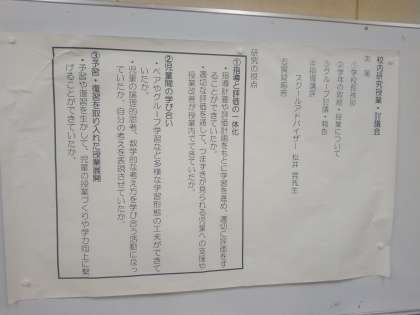 校内研究授業・討議会
次第
①学校長挨拶
②学年の取組・授業について
③グループ討議・報告
④指導講評
スクールアドバイザー 松井 先生
⑤質疑応答
研究の視点
①指導と評価の一体化
・指導計画や評価計画をもとに学習を進め、適切に評価をす
ることができていたか。
・適切な評価を通して、つまずきが見られる児童への支援や
授業改善が授業内でできていたか。
②児童間の学び合い
・ペアやグループ学習など多様な学習形態の工夫ができて
いたか。
・児童の論理的思考、数学的な考え方を学び合う活動になっ
ていたか。自分の考えを表現させていたか。
③予習・復習を取り入れた授業展開
・予習や復習を生かして、児童の授業づくりや学力向上に繋
げることができていたか。